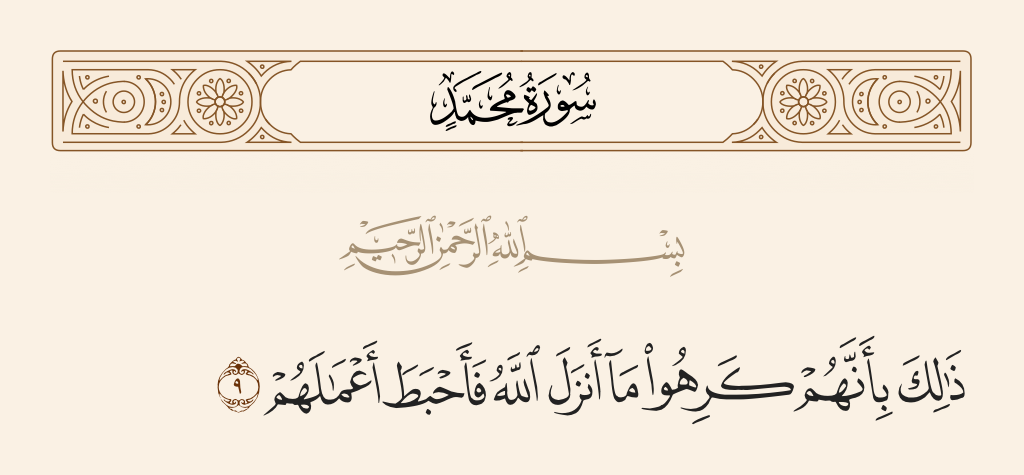 سُورَةُ مُحَمَّدٍ
بِسْمِ ٱللَّهِ ٱلرَّحْمَٰنِ ٱلرَّحِيمِ
ذَٰلِكَ بِأَنَّهُمْ كَرِهُوا۟ مَآ أَنزَلَ ٱللَّهُ فَأَحْبَطَ أَعْمَٰلَهُمْ ٩